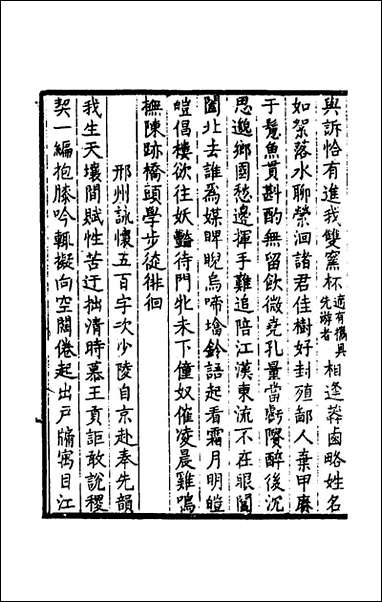 與訴恰有進我雙窯杯適有攜具先游者相逢莽鹵略姓名
如絮落水聊縈洄諸君佳樹好封殖鄙人棄甲麻
于髦魚貫斟酌無留飲微堯孔量當虧隤醉後沉
思邈鄉國愁邊揮手難追陪江漢東流不在眼閶
闔北去誰為媒睥睨烏啼墖鈴語起看霜月明皚
皚倡樓欲往妖豔待門牝未下僮奴催凌晨雞鳴
撫陳跡橋頭學步徒徘徊
邢州詠懷五百字次少陵自京赴奉先韻
我生天壤間賦性苦迂拙清時慕王貢詎敢說稷
契一編抱膝吟輒擬向空闊倦起出戶牖寓目江